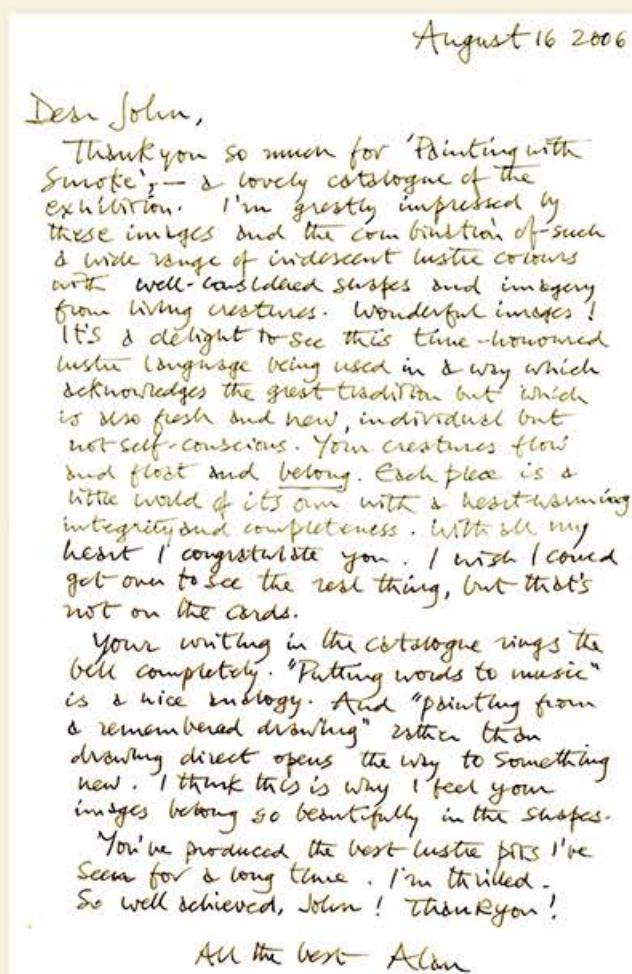 August 16 2006
Dear John,
Thankyou so much for 'Painting with
Smoke', – a lovely catalogue of the
exhibition. I'm greatly impressed by
these images and the combination of such
a wide range of iridescent lustre colours
with well-considered shapes and imagery
from living creatures. Wonderful images!
It's a delight to see this time-honoured
lustre language being used in a way which
acknowledges the great tradition but which
is also fresh and new, individual but
not self-conscious. Your creatures flow
and float and belong. Each piece is a
little world of its own with a heart-warming
integrity and completeness. With all my
heart I congratulate you. I wish I could
get over to see the real thing, but that's
not on the cards.
Your writing in the catalogue rings the
bell completely. "Putting words to music"
is a nice analogy. And "painting from
a remembered drawing" rather than
drawing direct opens the way to something
new. I think this is why I feel your
images belong so beautifully in the shapes.
You've produced the best lustre pots I've
seen for a long time. I'm thrilled.
So well achieved, John! Thankyou!
All the best Alan